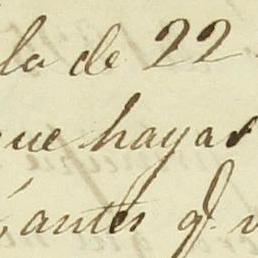 la de 22
que hayas
antes q.